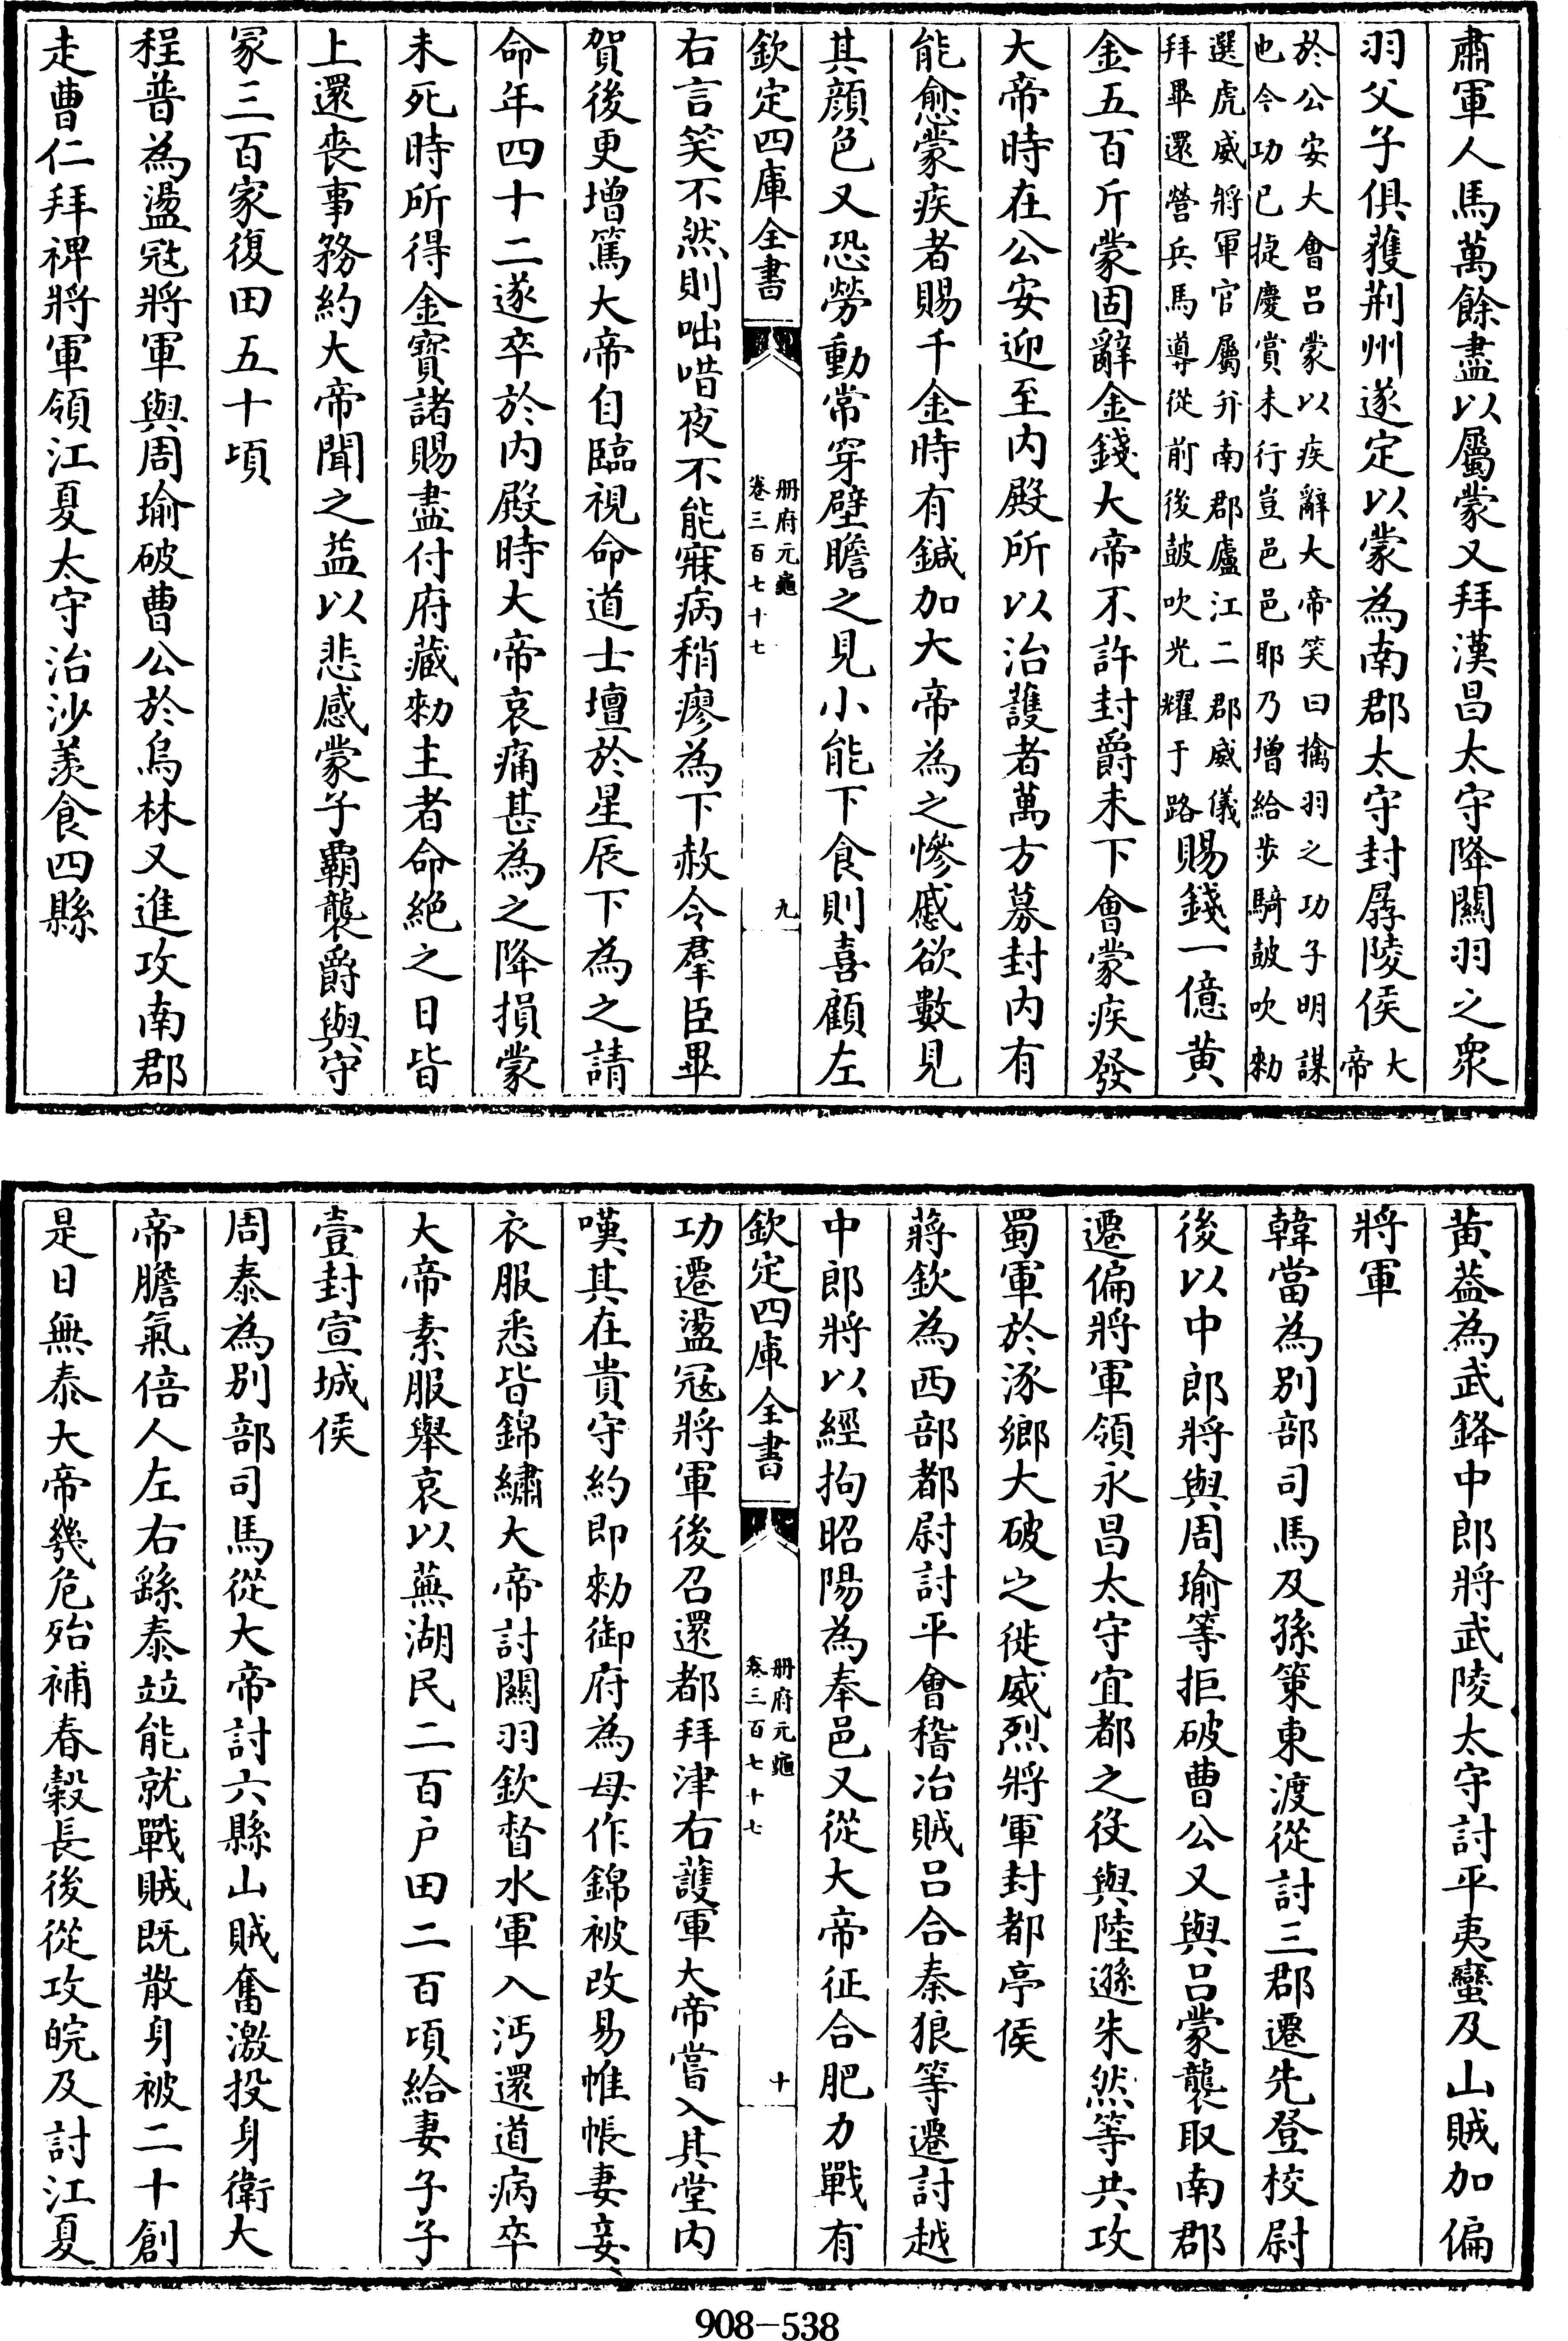 肅軍人馬萬餘盡以屬蒙又拜漢昌太守降關羽之衆
羽父子俱獲荆州遂定以蒙為南郡太守封孱陵侯大
帝
於公安大會吕蒙以疾辭大帝笑曰擒羽之功子明謀
也今功已捷慶賞未行豈邑邑耶乃增給步騎鼓吹勅
選虎威將軍官屬并南郡廬江二郡威儀
拜畢還營兵馬導從前後鼓吹光耀于路賜錢一億黄
金五百斤蒙固辭金錢大帝不許封爵未下會蒙疾發
大帝時在公安迎至内殿所以治䕶者萬方募封内有
能愈蒙疾者賜千金時有鍼加大帝為之慘慼欲數見
其顔色又恐勞動常穿壁瞻之見小能下食則喜顧左
欽定四庫全書
册府元龜
卷三百七十七
九
右言笑不然則咄唶夜不能寐病稍瘳為下赦令羣臣畢
賀後更增篤大帝自臨視命道士壇於星辰下為之請
命年四十二遂卒於内殿時大帝哀痛甚為之降損蒙
未死時所得金寶諸賜盡付府藏勅主者命絶之日皆
上還喪事務約大帝聞之益以悲感蒙子霸襲爵與守
冢三百家復田五十頃
程普為盪冦將軍與周瑜破曹公於烏林又進攻南郡
走曹仁拜禆將軍領江夏太守治沙羨食四縣
黄葢為武鋒中郎將武陵太守討平夷蠻及山賊加偏
將軍
韓當為别部司馬及孫策東渡從討三郡遷先登校尉
後以中郎將與周瑜等拒破曹公又與吕蒙襲取南郡
遷偏將軍領永昌太守宜都之役與陸遜朱然等共攻
蜀軍於涿鄉大破之徙威烈將軍封都亭侯
蔣欽為西部都尉討平會稽冶賊吕合秦狼等遷討越
中郎將以經拘昭陽為奉邑又從大帝征合肥力戰有
欽定四庫全書
册府元龜
卷三百七十七
十
功遷盪冦將軍後召還都拜津右䕶軍大帝嘗入其堂内
嘆其在貴守約即勅御府為母作錦被改易帷帳妻妾
衣服悉皆錦繡大帝討關羽欽督水軍入沔還道病卒
大帝素服舉哀以蕪湖民二百户田二百頃給妻子子
壹封宣城侯
周泰為别部司馬從大帝討六縣山賊奮激投身衛大
帝膽氣倍人左右繇泰竝能就戰賊既散身被二十創
是日無泰大帝幾危殆補春榖長後從攻皖及討江夏
908-538